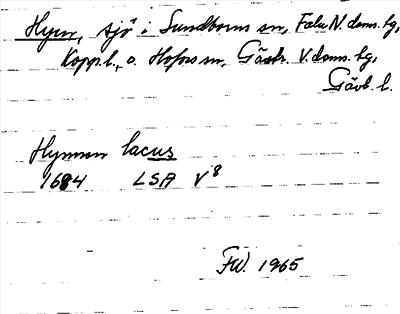 Hyen, sjö i Sundborns sn, Falu N. doms. hg,
Kopp. l., o. Hofors sn, Gästr. V. doms. hg,
Gävl. l.
Hynnen lacus
1684 LSA V 8
FW. 1965